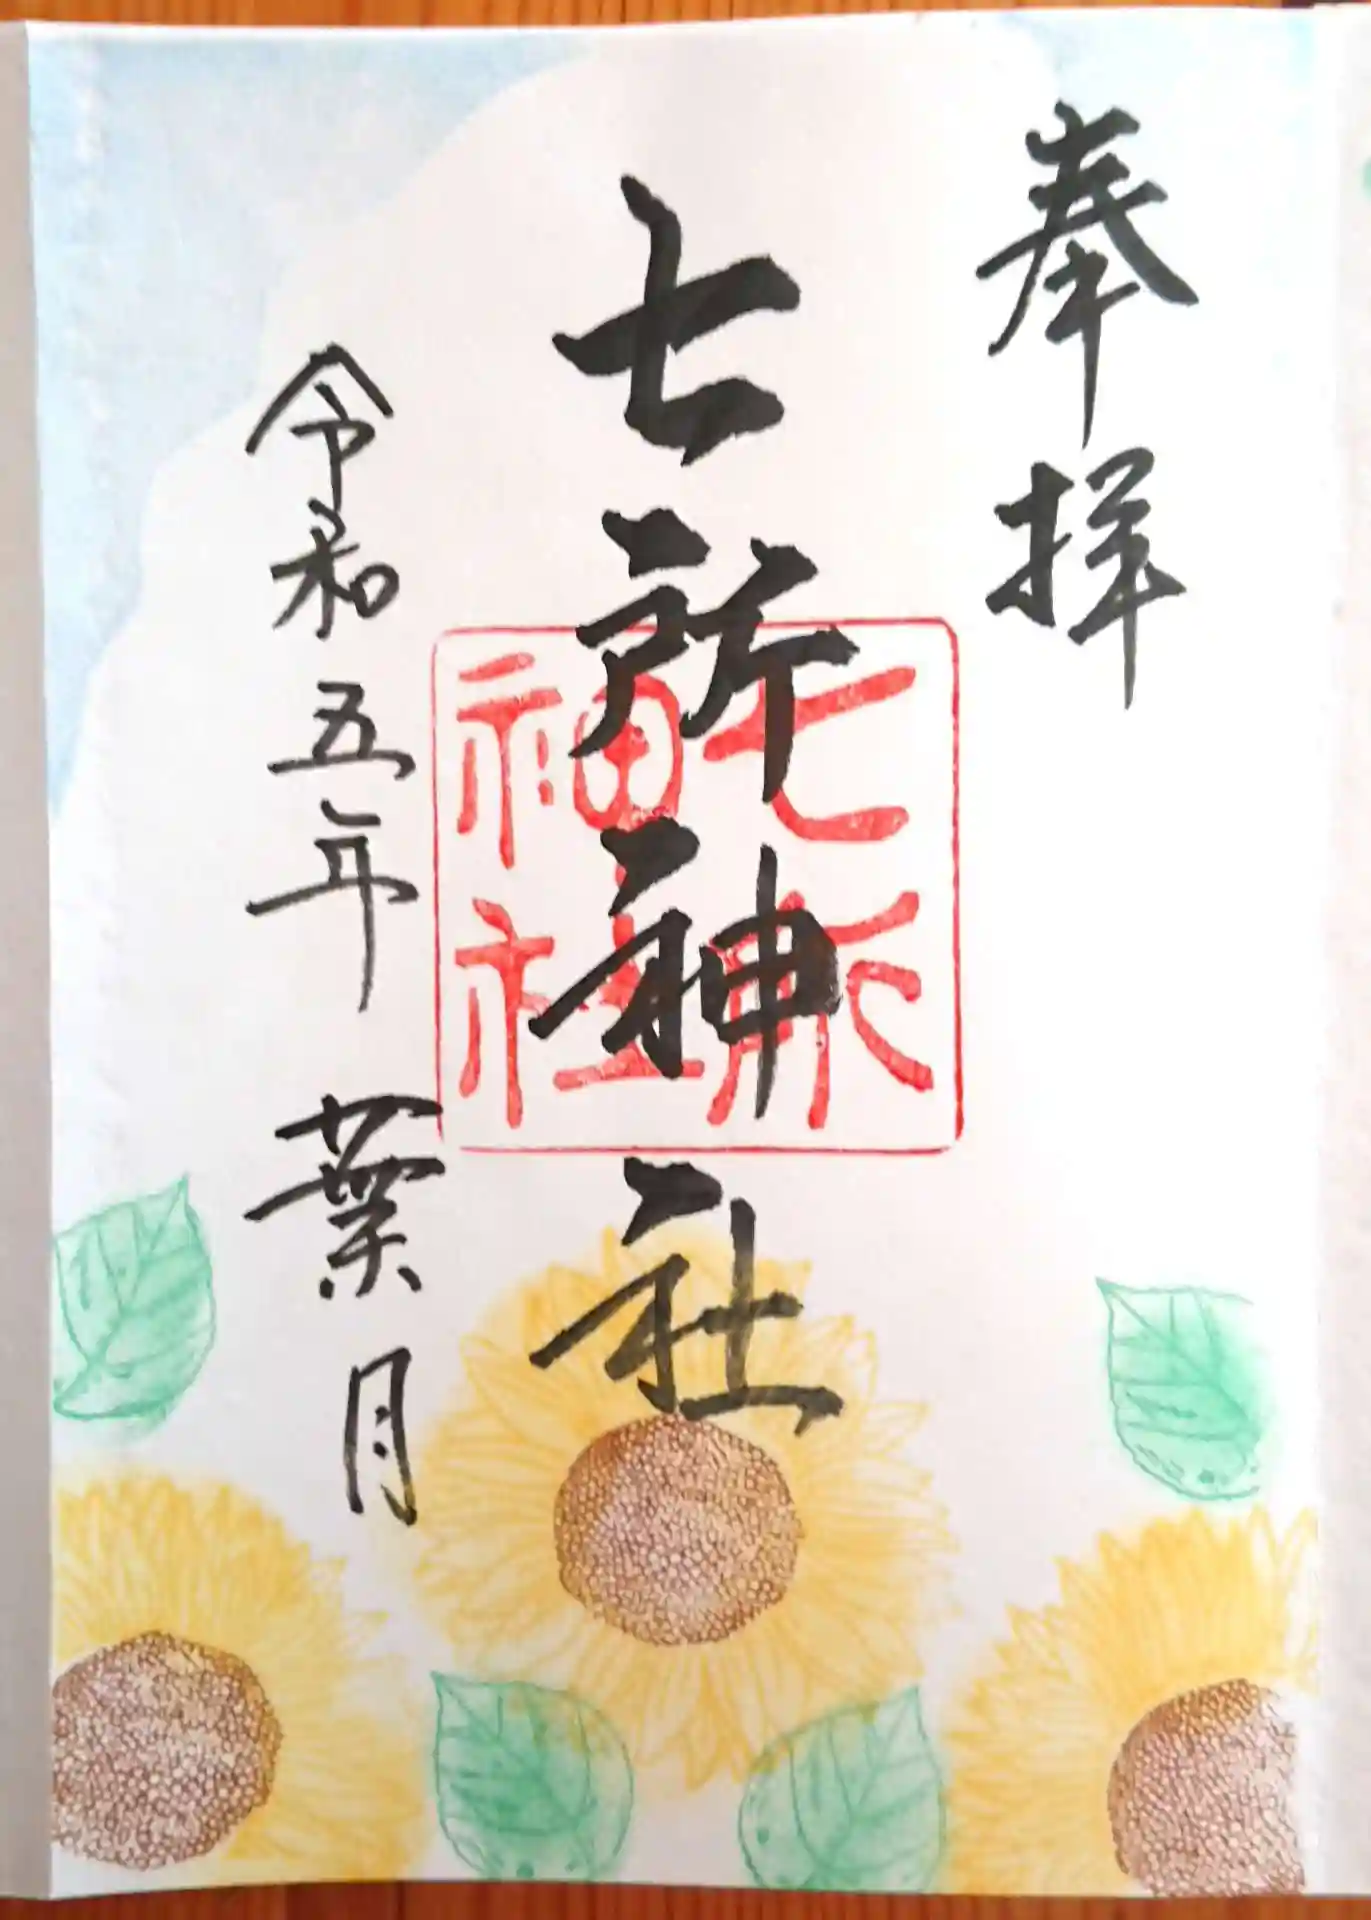 奉拝
七所神社
七所神社
令和五年 葉月